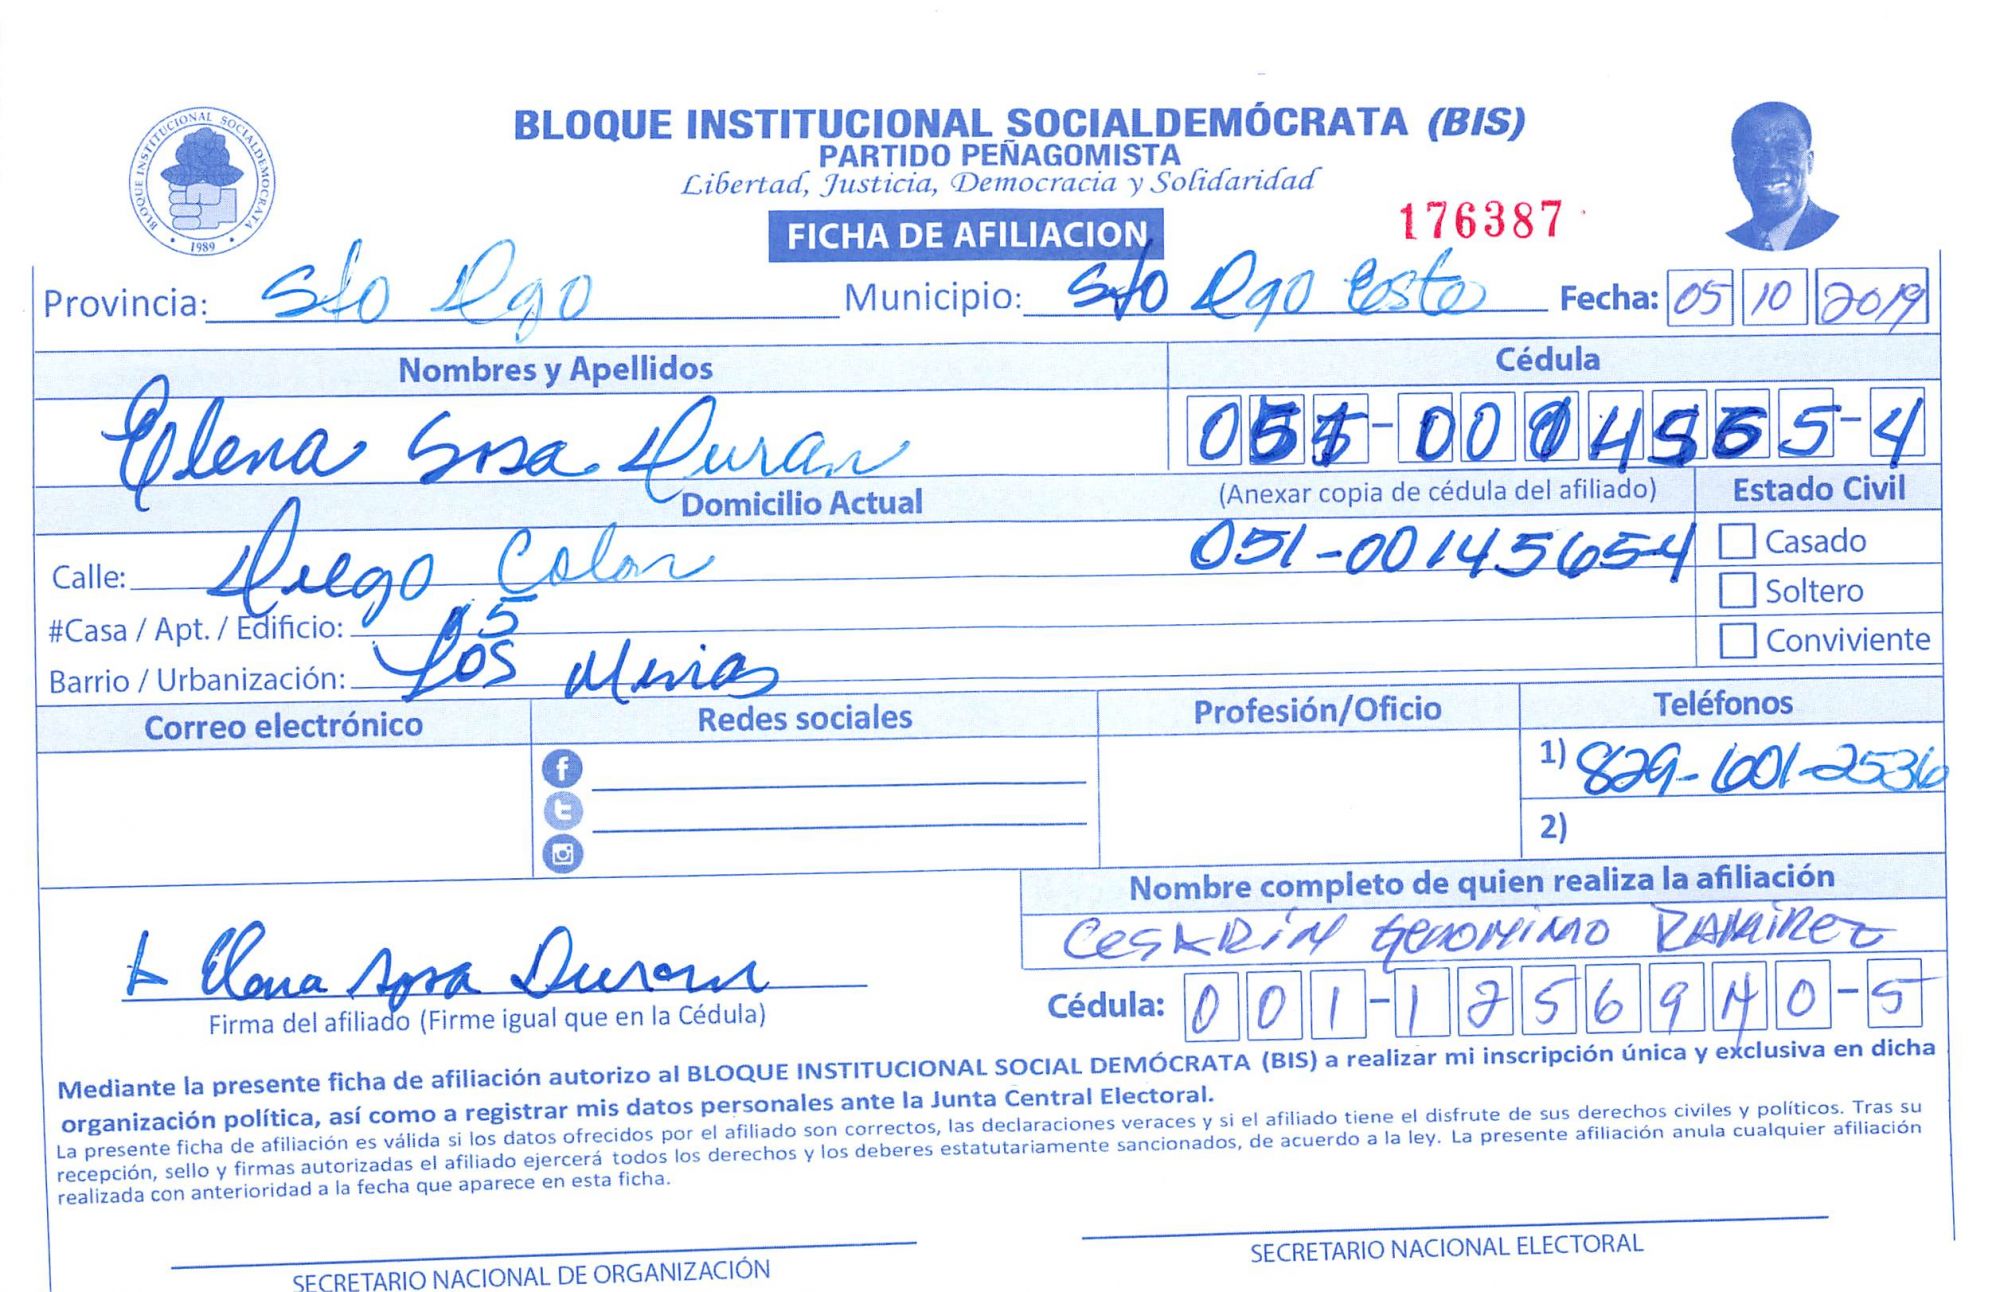 BLOQUE INSTITUCIONAL SOCIALDEMÓCRATA
1989
BLOQUE INSTITUCIONAL SOCIALDEMÓCRATA (BIS)
PARTIDO PEÑAGOMISTA
Libertad, Justicia, Democracia y Solidaridad
FICHA DE AFILIACION
176387
Provincia: Sto Dgo Municipio: Sto Dgo Este Fecha: 05 10 2019
Nombres y Apellidos Cédula
Elena Sosa Duran 051-0014565-4
Domicilio Actual (Anexar copia de cédula del afiliado) Estado Civil
051-00145654
Calle: Diego Colon Casado
#Casa / Apt. / Edificio: 15 Soltero
Barrio / Urbanización: Los Conviviente
Correo electrónico Redes sociales Profesión/Oficio Teléfonos
1) 829-601-2536
2)
Nombre completo de quien realiza la afiliación
Geronimo Ramirez
Elena Sosa Duran
Firma del afiliado (Firme igual que en la Cédula)
Cédula: 001-1256940-5
Mediante la presente ficha de afiliación autorizo al BLOQUE INSTITUCIONAL SOCIAL DEMÓCRATA (BIS) a realizar mi inscripción única y exclusiva en dicha
organización política, así como a registrar mis datos personales ante la Junta Central Electoral.
La presente ficha de afiliación es válida si los datos ofrecidos por el afiliado son correctos, las declaraciones veraces y si el afiliado tiene el disfrute de sus derechos civiles y políticos. Tras su
recepción, sello y firmas autorizadas el afiliado ejercerá todos los derechos y los deberes estatutariamente sancionados, de acuerdo a la ley. La presente afiliación anula cualquier afiliación
realizada con anterioridad a la fecha que aparece en esta ficha.
SECRETARIO NACIONAL DE ORGANIZACIÓN
SECRETARIO NACIONAL ELECTORAL